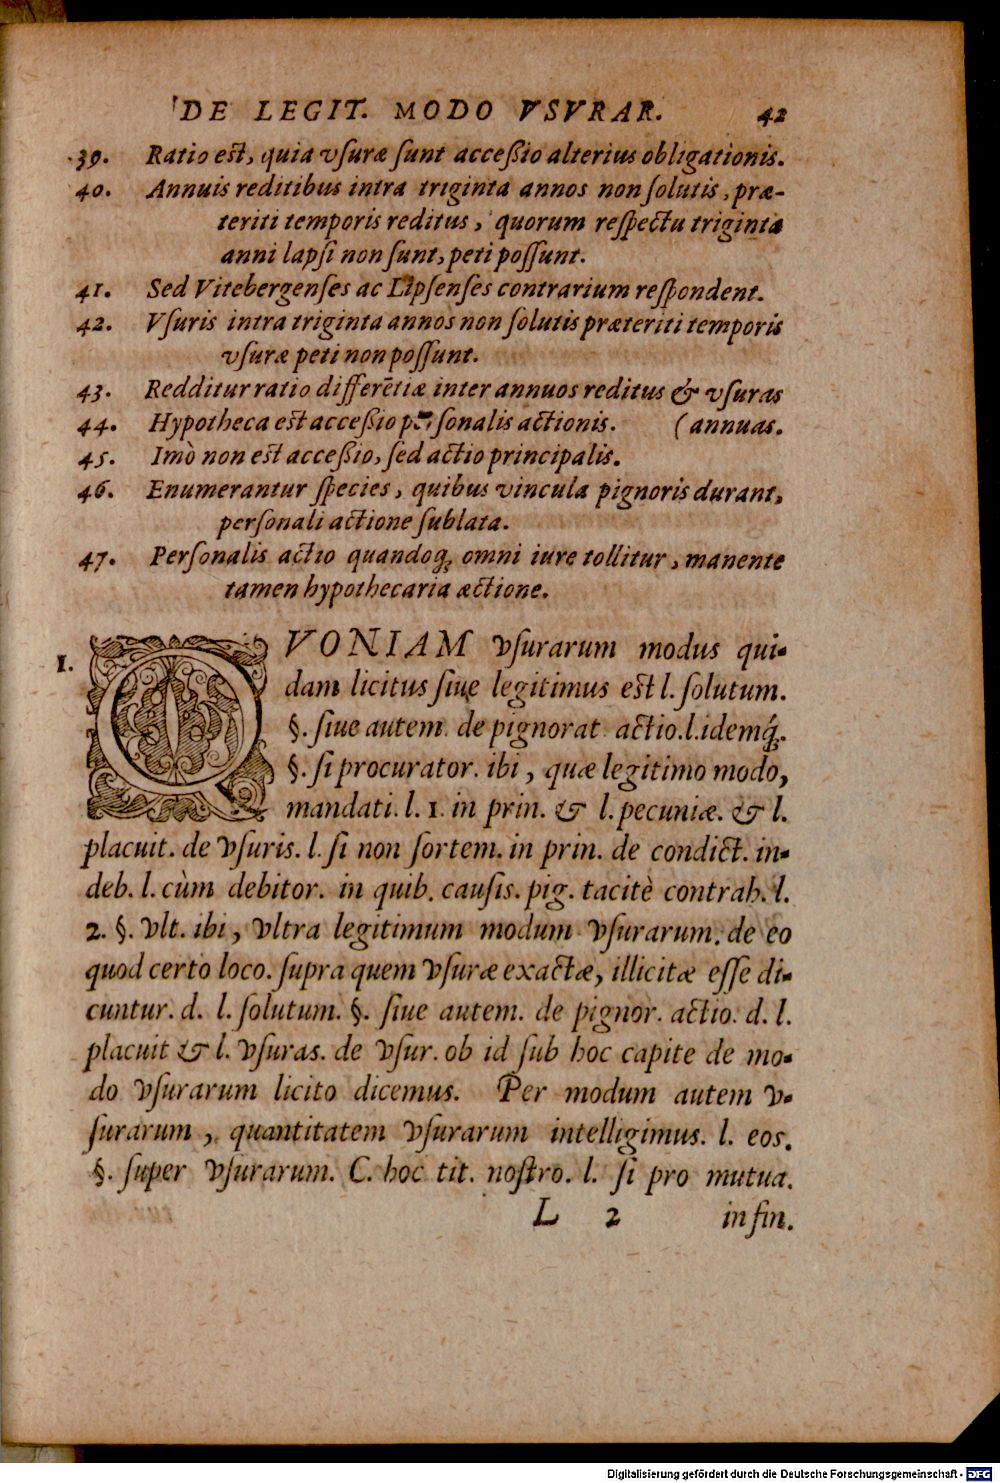 DE LEGIT. MODO VSVRAR. 42
39. Ratio est, quia vſuræ ſunt acceſſio alterius obligationis.
40. Annuis reditibus intra triginta annos non ſolutis, præ-
teriti temporis reditus, quorum reſpectu triginta
anni lapſi non ſunt, peti poſſunt.
41. Sed Vitebergenſes ac Lipſenſes contrarium reſpondent.
42. Vſuris intra triginta annos non ſolutis præteriti temporis
vſuræ peti non poſſunt.
43. Redditur ratio differẽtiæ inter annuos reditus & vſuras
44. Hypotheca est acceſſio perſonalis actionis. (annuas.
45. Imò non est acceſſio, ſed actio principalis.
46. Enumerantur ſpecies, quibus vincula pignoris durant,
perſonali actione ſublata.
47. Perſonalis actio quandoq; omni iure tollitur, manente
tamen hypothecaria actione.
1. QVONIAM vſurarum modus qui-
dam licitus ſiue legitimus est l. ſolutum.
§. ſiue autem. de pignorat. actio. l. idemq́;.
§. ſi procurator. ibi, quæ legitimo modo,
mandati. l. 1. in prin. & l. pecuniæ. & l.
placuit. de vſuris. l. ſi non ſortem. in prin. de condict. in-
deb. l. cùm debitor. in quib. cauſis. pig. tacitè contrah. l.
2. §. vlt. ibi, vltra legitimum modum vſurarum. de eo
quod certo loco. ſupra quem vſuræ exactæ, illicitæ eſſe di-
cuntur. d. l. ſolutum. §. ſiue autem. de pignor. actio. d. l.
placuit & l. vſuras. de vſur. ob id ſub hoc capite de mo-
do vſurarum licito dicemus. Per modum autem v-
ſurarum, quantitatem vſurarum intelligimus. l. eos.
§. ſuper vſurarum. C. hoc tit. noſtro. l. ſi pro mutua.
L 2 in fin.
Digitalisierung gefördert durch die Deutsche Forschungsgemeinschaft - DFG